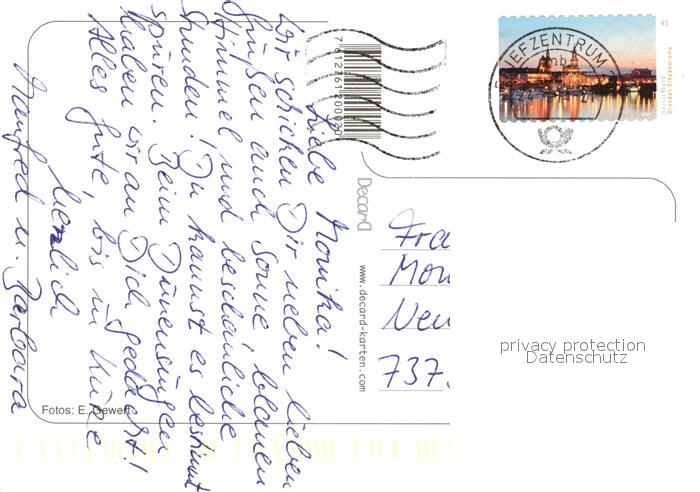 Liebe Monika!
Wir schicken Dir neben lieben
Grüßen auch Sonne, blauen
Himmel und beschauliche
Stunden! Du kannst es bestimmt
spüren. Beim Dünensingen
haben wir an Dich gedacht!
Alles Gute, bis in Kürze
Herzlich
Manfred u. Barbara
Fotos: E. Gewert
Decard
www.decard-karten.com
BRIEFZENTRUM
45
Deutschland
Dresden Elbpanorama
Fra
Mon
Neu
737.
privacy protection
Datenschutz